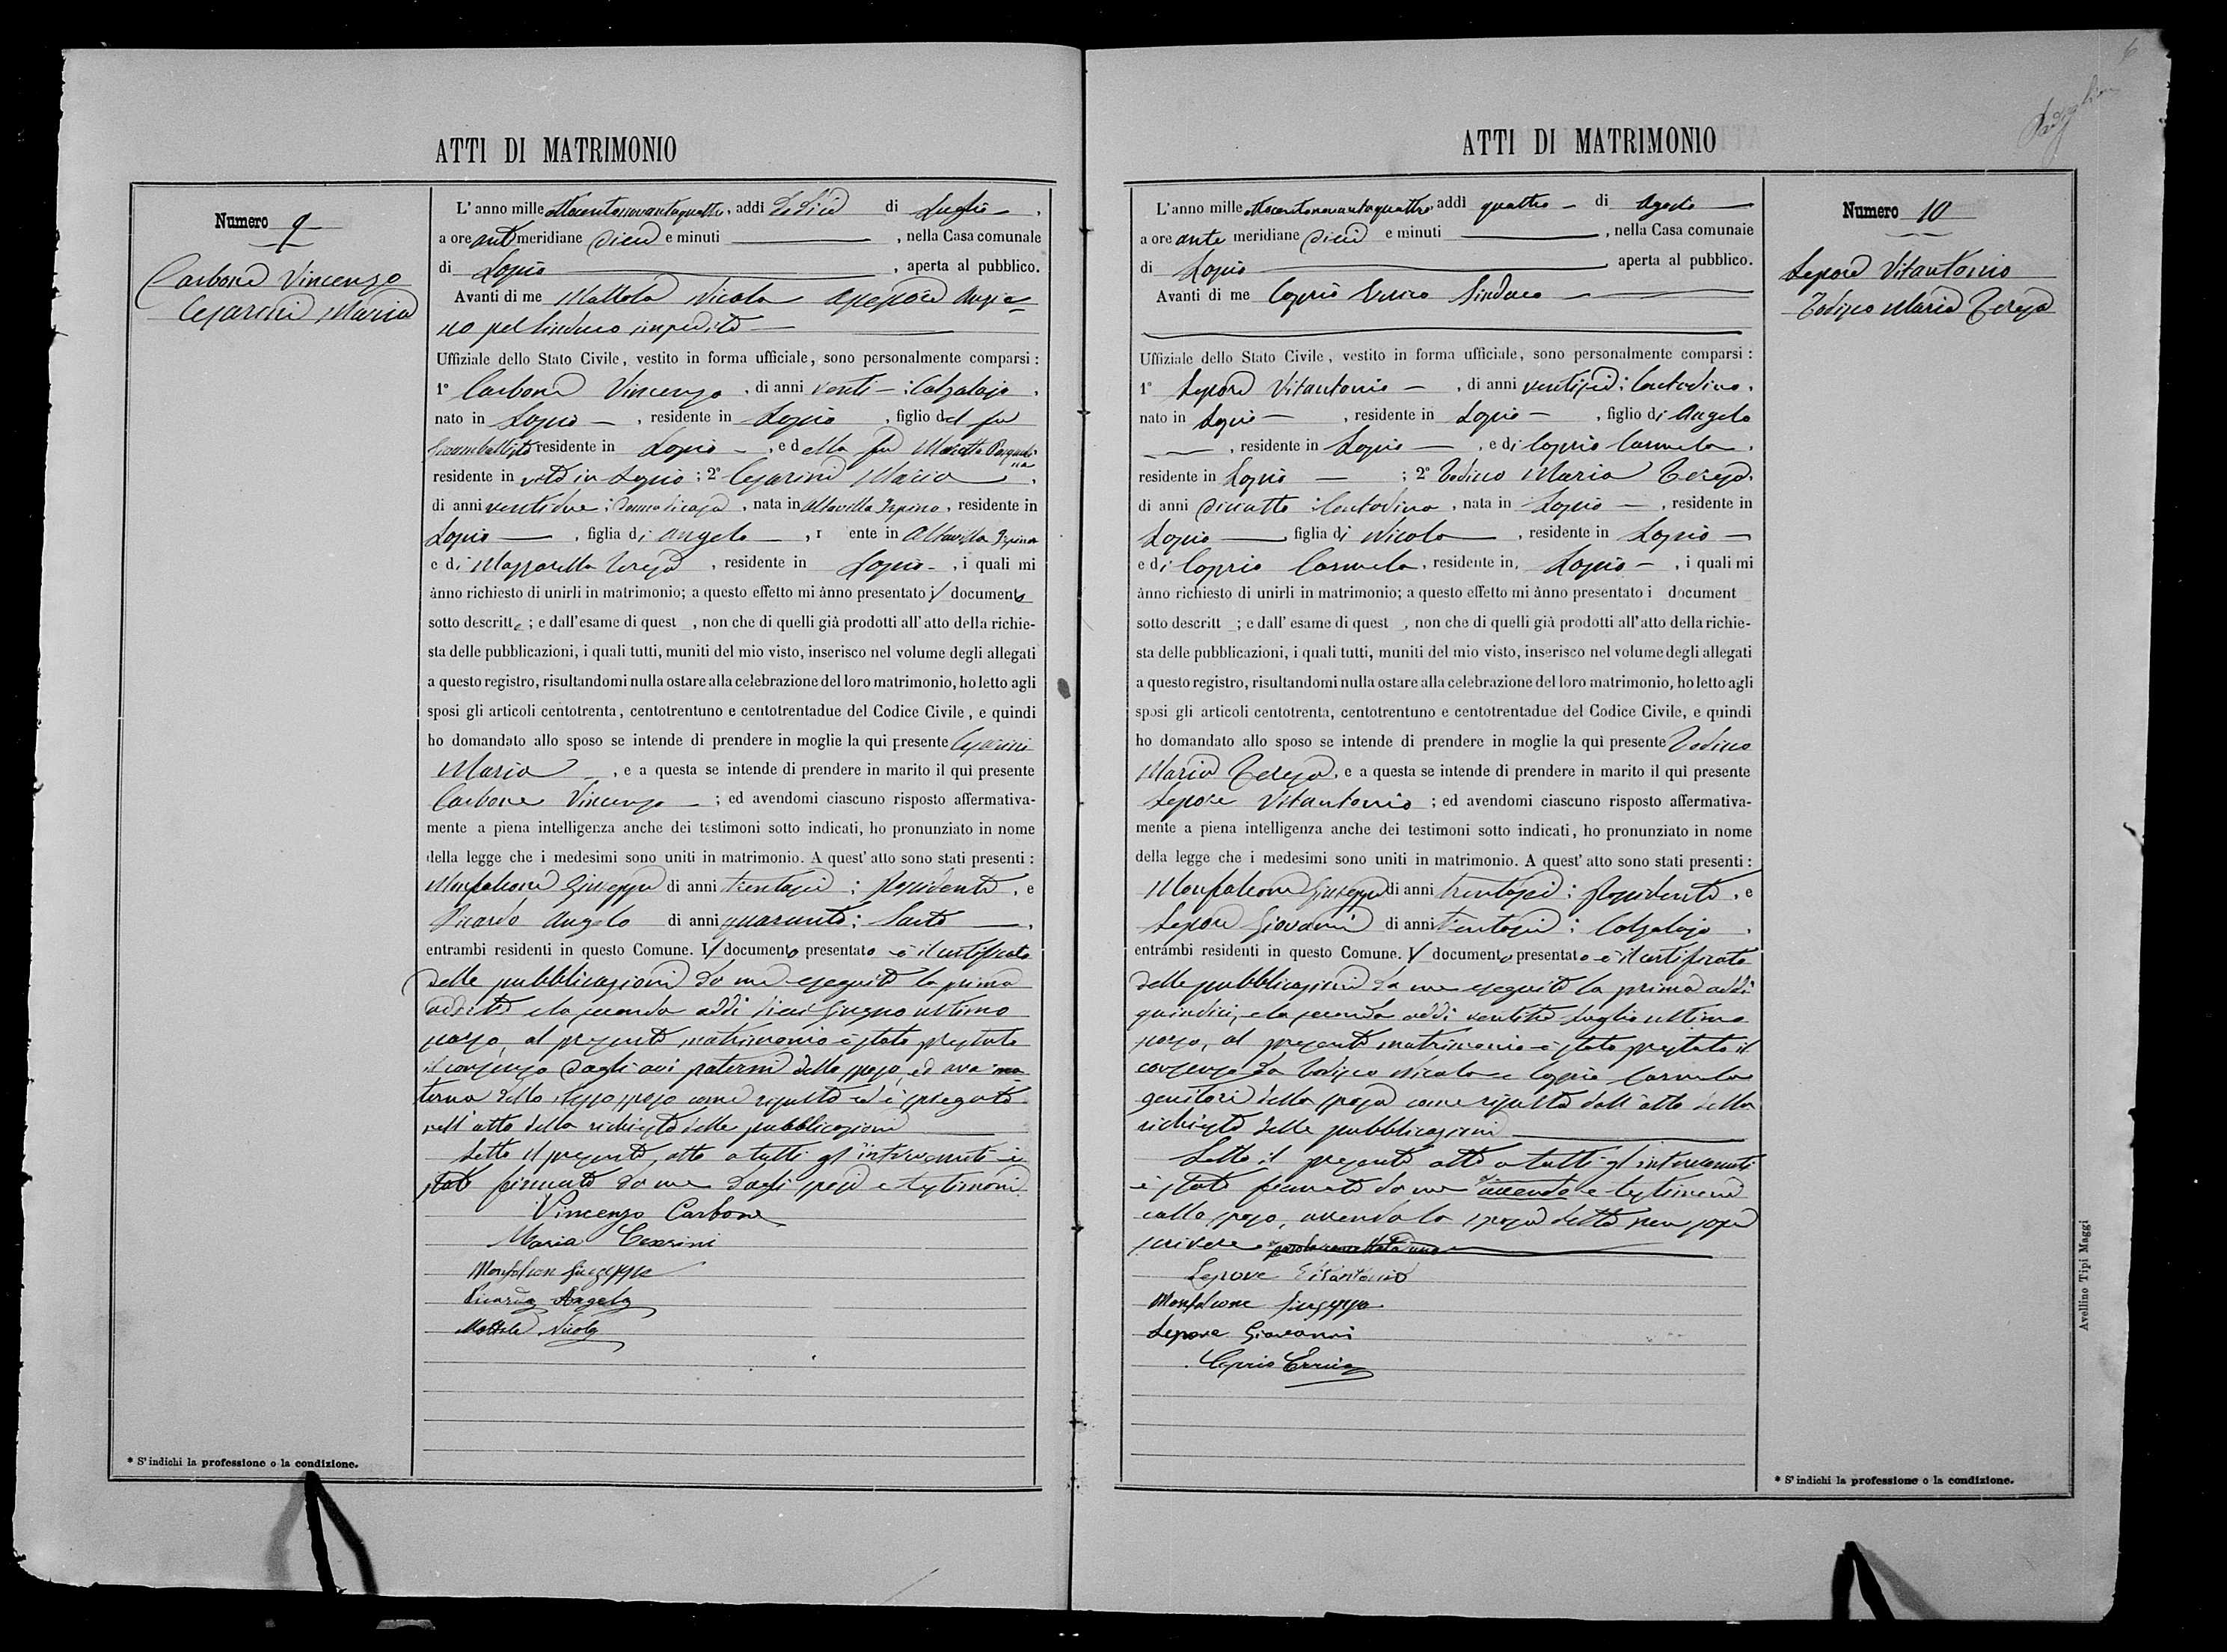 ATTI DI MATRIMONIO
Numero 9
Carbone Vincenzo
Cesarini Maria
L'anno mille ottocentonovantaquattro, addì dodici di Luglio,
a ore ante meridiane dieci e minuti , nella Casa comunale
di Lapio , aperta al pubblico.
Avanti di me Mottola Nicola Assessore Anzia=
no pel Sindaco impedito
Uffiziale dello Stato Civile, vestito in forma ufficiale, sono personalmente comparsi:
1° Carbone Vincenzo, di anni venti : Calzolajo,
nato in Lapio, residente in Lapio, figlio del fu
Giovambattista residente in Lapio, e della fu Pasquali
na
residente in vita in Lapio; 2° Cesarini Maria,
di anni ventidue; donna di casa, nata in Altavilla Irpina, residente in
Lapio, figlia di Angelo, r ente in Altavilla Irpina
e di Mazzarella Teresa, residente in Lapio, i quali mi
ànno richiesto di unirli in matrimonio; a questo effetto mi ànno presentato il documento
sotto descritto; e dall'esame di quest , non che di quelli già prodotti all'atto della richie-
sta delle pubblicazioni, i quali tutti, muniti del mio visto, inserisco nel volume degli allegati
a questo registro, risultandomi nulla ostare alla celebrazione del loro matrimonio, ho letto agli
sposi gli articoli centotrenta, centotrentuno e centotrentadue del Codice Civile, e quindi
ho domandato allo sposo se intende di prendere in moglie la qui presente Cesarini
Maria, e a questa se intende di prendere in marito il qui presente
Carbone Vincenzo; ed avendomi ciascuno risposto affermativa-
mente a piena intelligenza anche dei testimoni sotto indicati, ho pronunziato in nome
della legge che i medesimi sono uniti in matrimonio. A quest'atto sono stati presenti:
Monfalcone Giuseppe di anni trentasei; Possidente, e
Picardo Angelo di anni quaranta; Sarto,
entrambi residenti in questo Comune. Il documento presentato è il certificato
delle pubblicazioni da me eseguite la prima
addì tre e la seconda addì dieci Giugno ultimo
scorso, al presente matrimonio è stato prestato
il consenso dagli avi paterni dello sposo, ed ava ma=
terna dello stesso sposo come risulta ed è spiegato
nell'atto della richiesta delle pubblicazioni
Letto il presente atto a tutti gl'intervenuti è
stato firmato da me dagli sposi e testimoni
Vincenzo Carbone
Maria Cesarini
Monfalcone Giuseppe
Picardo Angelo
Mottola Nicola
* S'indichi la professione o la condizione.
6
ATTI DI MATRIMONIO
Numero 10
Lepore Vitantonio
Todisco Maria Teresa
L'anno mille ottocentonovantaquattro, addì quattro di Agosto
a ore ante meridiane dieci e minuti , nella Casa comunale
di Lapio , aperta al pubblico.
Avanti di me Caprio Errico Sindaco
Uffiziale dello Stato Civile, vestito in forma ufficiale, sono personalmente comparsi:
1° Lepore Vitantonio, di anni ventisei; Contadino,
nato in Lapio, residente in Lapio, figlio di Angelo
, residente in Lapio, e di Caprio Carmela,
residente in Lapio; 2° Todisco Maria Teresa,
di anni diciotto; Contadina, nata in Lapio, residente in
Lapio, figlia di Nicola, residente in Lapio
e di Caprio Carmela, residente in Lapio, i quali mi
ànno richiesto di unirli in matrimonio; a questo effetto mi ànno presentato i document
sotto descritt ; e dall'esame di quest , non che di quelli già prodotti all'atto della richie-
sta delle pubblicazioni, i quali tutti, muniti del mio visto, inserisco nel volume degli allegati
a questo registro, risultandomi nulla ostare alla celebrazione del loro matrimonio, ho letto agli
sposi gli articoli centotrenta, centotrentuno e centotrentadue del Codice Civile, e quindi
ho domandato allo sposo se intende di prendere in moglie la qui presente Todisco
Maria Teresa, e a questa se intende di prendere in marito il qui presente
Lepore Vitantonio; ed avendomi ciascuno risposto affermativa-
mente a piena intelligenza anche dei testimoni sotto indicati, ho pronunziato in nome
della legge che i medesimi sono uniti in matrimonio. A quest'atto sono stati presenti:
Monfalcone Giuseppe di anni trentasei; Possidente, e
Lepore Giovanni di anni trentasei; Calzolajo,
entrambi residenti in questo Comune. Il documento presentato è il certificato
delle pubblicazioni da me eseguite la prima addì
quindici, e la seconda addì ventidue Luglio ultimo
scorso, al presente matrimonio è stato prestato il
consenso da Todisco Nicola e Caprio Carmela
genitori della sposa come risulta dall'atto della
richiesta delle pubblicazioni
Letto il presente atto a tutti gl'intervenuti
è stato firmato da me avendo e testimoni
collo sposo, avendo la sposa detto non sapere
scrivere parola cancellata una
Lepore Vitantonio
Monfalcone Giuseppe
Lepore Giovanni
Caprio Errico
* S'indichi la professione o la condizione.
Avellino Tipi Maggi